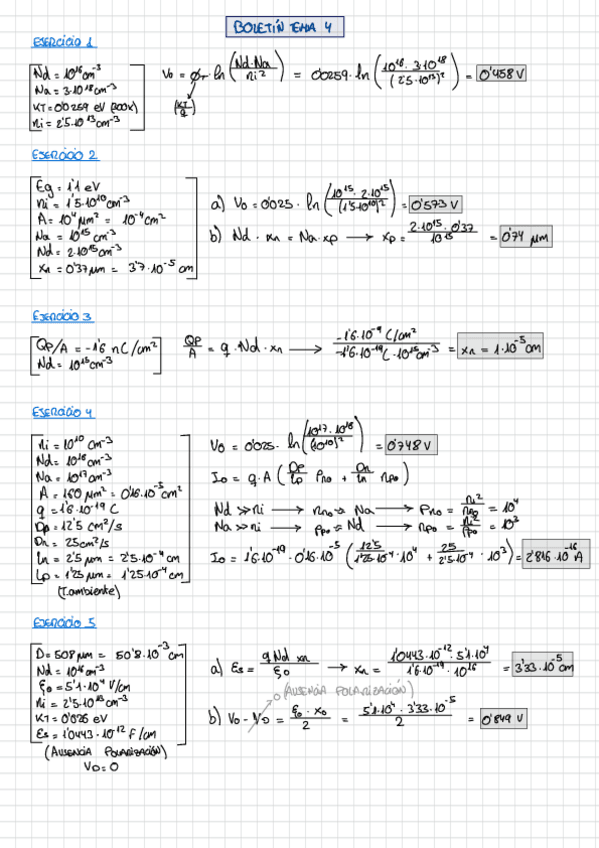 BOLETÍN TEMA 4
EJERCICIO 1
Nd = 10¹⁶ cm⁻³
Na = 3·10¹⁸ cm⁻³
KT = 0'0259 eV (300K)
ni = 2'5·10¹³ cm⁻³
V₀ = ϕ_T · ln(Nd·Na / ni²) = 0'0259 · ln(10¹⁶ · 3·10¹⁸ / (2'5·10¹³)²) = 0'458 V
(KT/q)
EJERCICIO 2
Eg = 1'1 eV
ni = 1'5·10¹⁰ cm⁻³
A = 10⁴ μm² = 10⁻⁴ cm²
Na = 10¹⁵ cm⁻³
Nd = 2·10¹⁵ cm⁻³
xn = 0'37 μm = 3'7·10⁻⁵ cm
a) V₀ = 0'025 · ln(10¹⁵ · 2·10¹⁵ / (1'5·10¹⁰)²) = 0'573 V
b) Nd · xn = Na · xp → xp = 2·10¹⁵ · 0'37 / 10¹⁵ = 0'74 μm
EJERCICIO 3
Qp/A = -1'6 nC/cm²
Nd = 10¹⁵ cm⁻³
Qp/A = q · Nd · xn → -1'6·10⁻⁹ C/cm² / -1'6·10⁻¹⁹ C · 10¹⁵ cm⁻³ = xn = 1·10⁻⁵ cm
EJERCICIO 4
ni = 10¹⁰ cm⁻³
Nd = 10¹⁶ cm⁻³
Na = 10¹⁷ cm⁻³
A = 160 μm² = 0'16·10⁻⁵ cm²
q = 1'6·10⁻¹⁹ C
Dp = 12'5 cm²/s
Dn = 25 cm²/s
Ln = 2'5 μm = 2'5·10⁻⁴ cm
Lp = 1'25 μm = 1'25·10⁻⁴ cm
(T.ambiente)
V₀ = 0'025 · ln(10¹⁷ · 10¹⁶ / (10¹⁰)²) = 0'748 V
I₀ = q·A (Dp/Lp Pn₀ + Dn/Ln np₀)
Nd ≫ ni → nn₀ ≈ Na → Pn₀ = ni²/nn₀ = 10⁴
Na ≫ ni → pp₀ ≈ Nd → np₀ = ni²/pp₀ = 10³
I₀ = 1'6·10⁻¹⁹ · 0'16·10⁻⁵ (12'5 / 1'25·10⁻⁴ · 10⁴ + 25 / 2'5·10⁻⁴ · 10³) = 2'816·10⁻¹⁶ A
EJERCICIO 5
D = 508 μm = 50'8·10⁻³ cm
Nd = 10¹⁶ cm⁻³
ξ₀ = 5'1·10⁴ V/cm
ni = 2'5·10¹³ cm⁻³
KT = 0'026 eV
Es = 1'0443·10⁻¹² F/cm
(AUSENCIA POLARIZACIÓN)
V_D = 0
a) Es = q Nd xn / ξ₀ → xn = 1'0443·10⁻¹² · 5'1·10⁴ / 1'6·10⁻¹⁹ · 10¹⁶ = 3'33·10⁻⁵ cm
0 (AUSENCIA POLARIZACIÓN)
b) V₀ - V_D = ξ₀ · x₀ / 2 = 5'1·10⁴ · 3'33·10⁻⁵ / 2 = 0'849 V